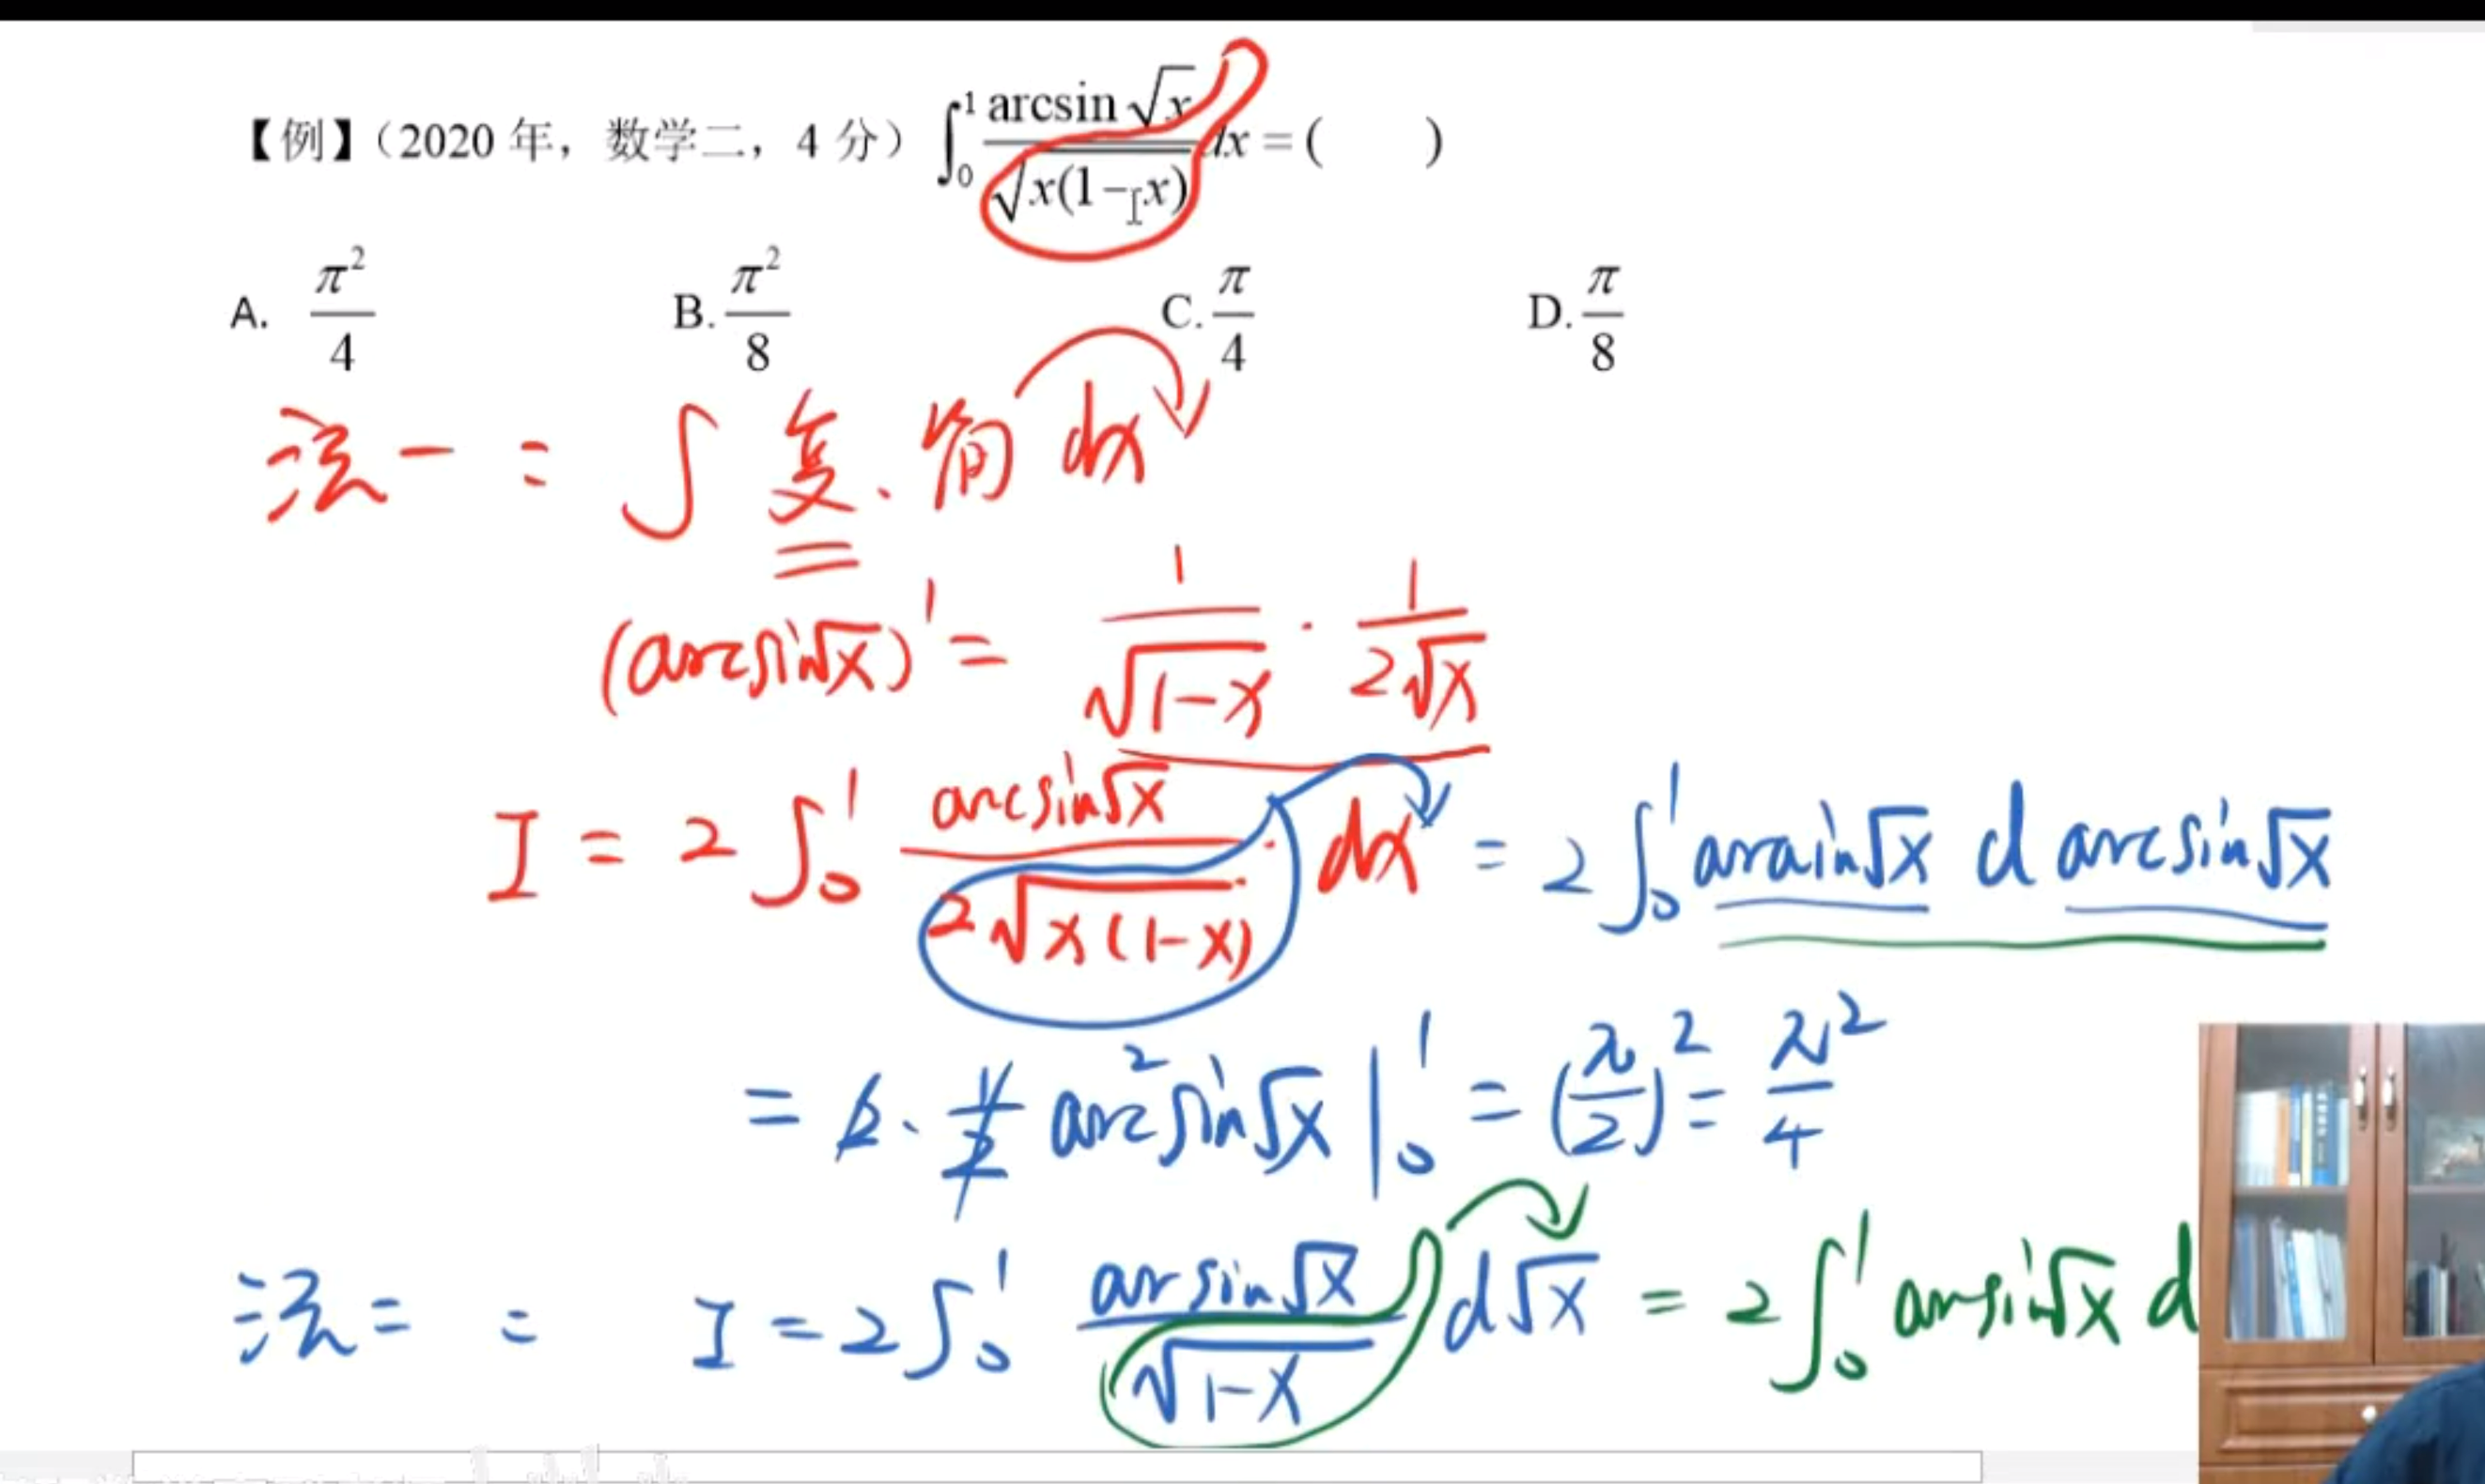 【例】(2020 年，数学二，4 分) ∫₀¹ arcsin √x / √x(1−x) dx = (    )
A. π²/4    B. π²/8    C. π/4    D. π/8
法一: ∫ 复·简 dx
(arcsin√x)' = 1/√1-x · 1/2√x
I = 2∫₀¹ arcsin√x / 2√x(1-x) dx = 2∫₀¹ arcsin√x d arcsin√x
= 2·1/2 arc²sin√x |₀¹ = (π/2)² = π²/4
法二: I = 2∫₀¹ arsin√x / √1-x d√x = 2∫₀¹ arsin√x d